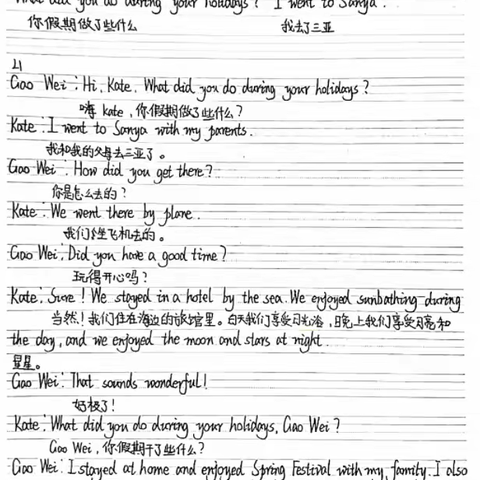 What did you do during your holidays? I went to Sanya.
你假期做了些什么 我去了三亚
L1
Gao Wei: Hi, Kate. What did you do during your holidays?
嗨 kate，你假期做了些什么？
Kate: I went to Sanya with my parents.
我和我的父母去三亚了。
Gao Wei: How did you get there?
你是怎么去的？
Kate: We went there by plane.
我们坐飞机去的。
Gao Wei: Did you have a good time?
玩得开心吗？
Kate: Sure! We stayed in a hotel by the sea. We enjoyed sunbathing during
当然！我们住在海边的旅馆里。白天我们享受日光浴，晚上我们享受月亮和
the day, and we enjoyed the moon and stars at night.
星星。
Gao Wei: That sounds wonderful!
好极了！
Kate: What did you do during your holidays, Gao Wei?
Gao Wei，你假期干了些什么？
Gao Wei: I stayed at home and enjoyed Spring Festival with my family. I also